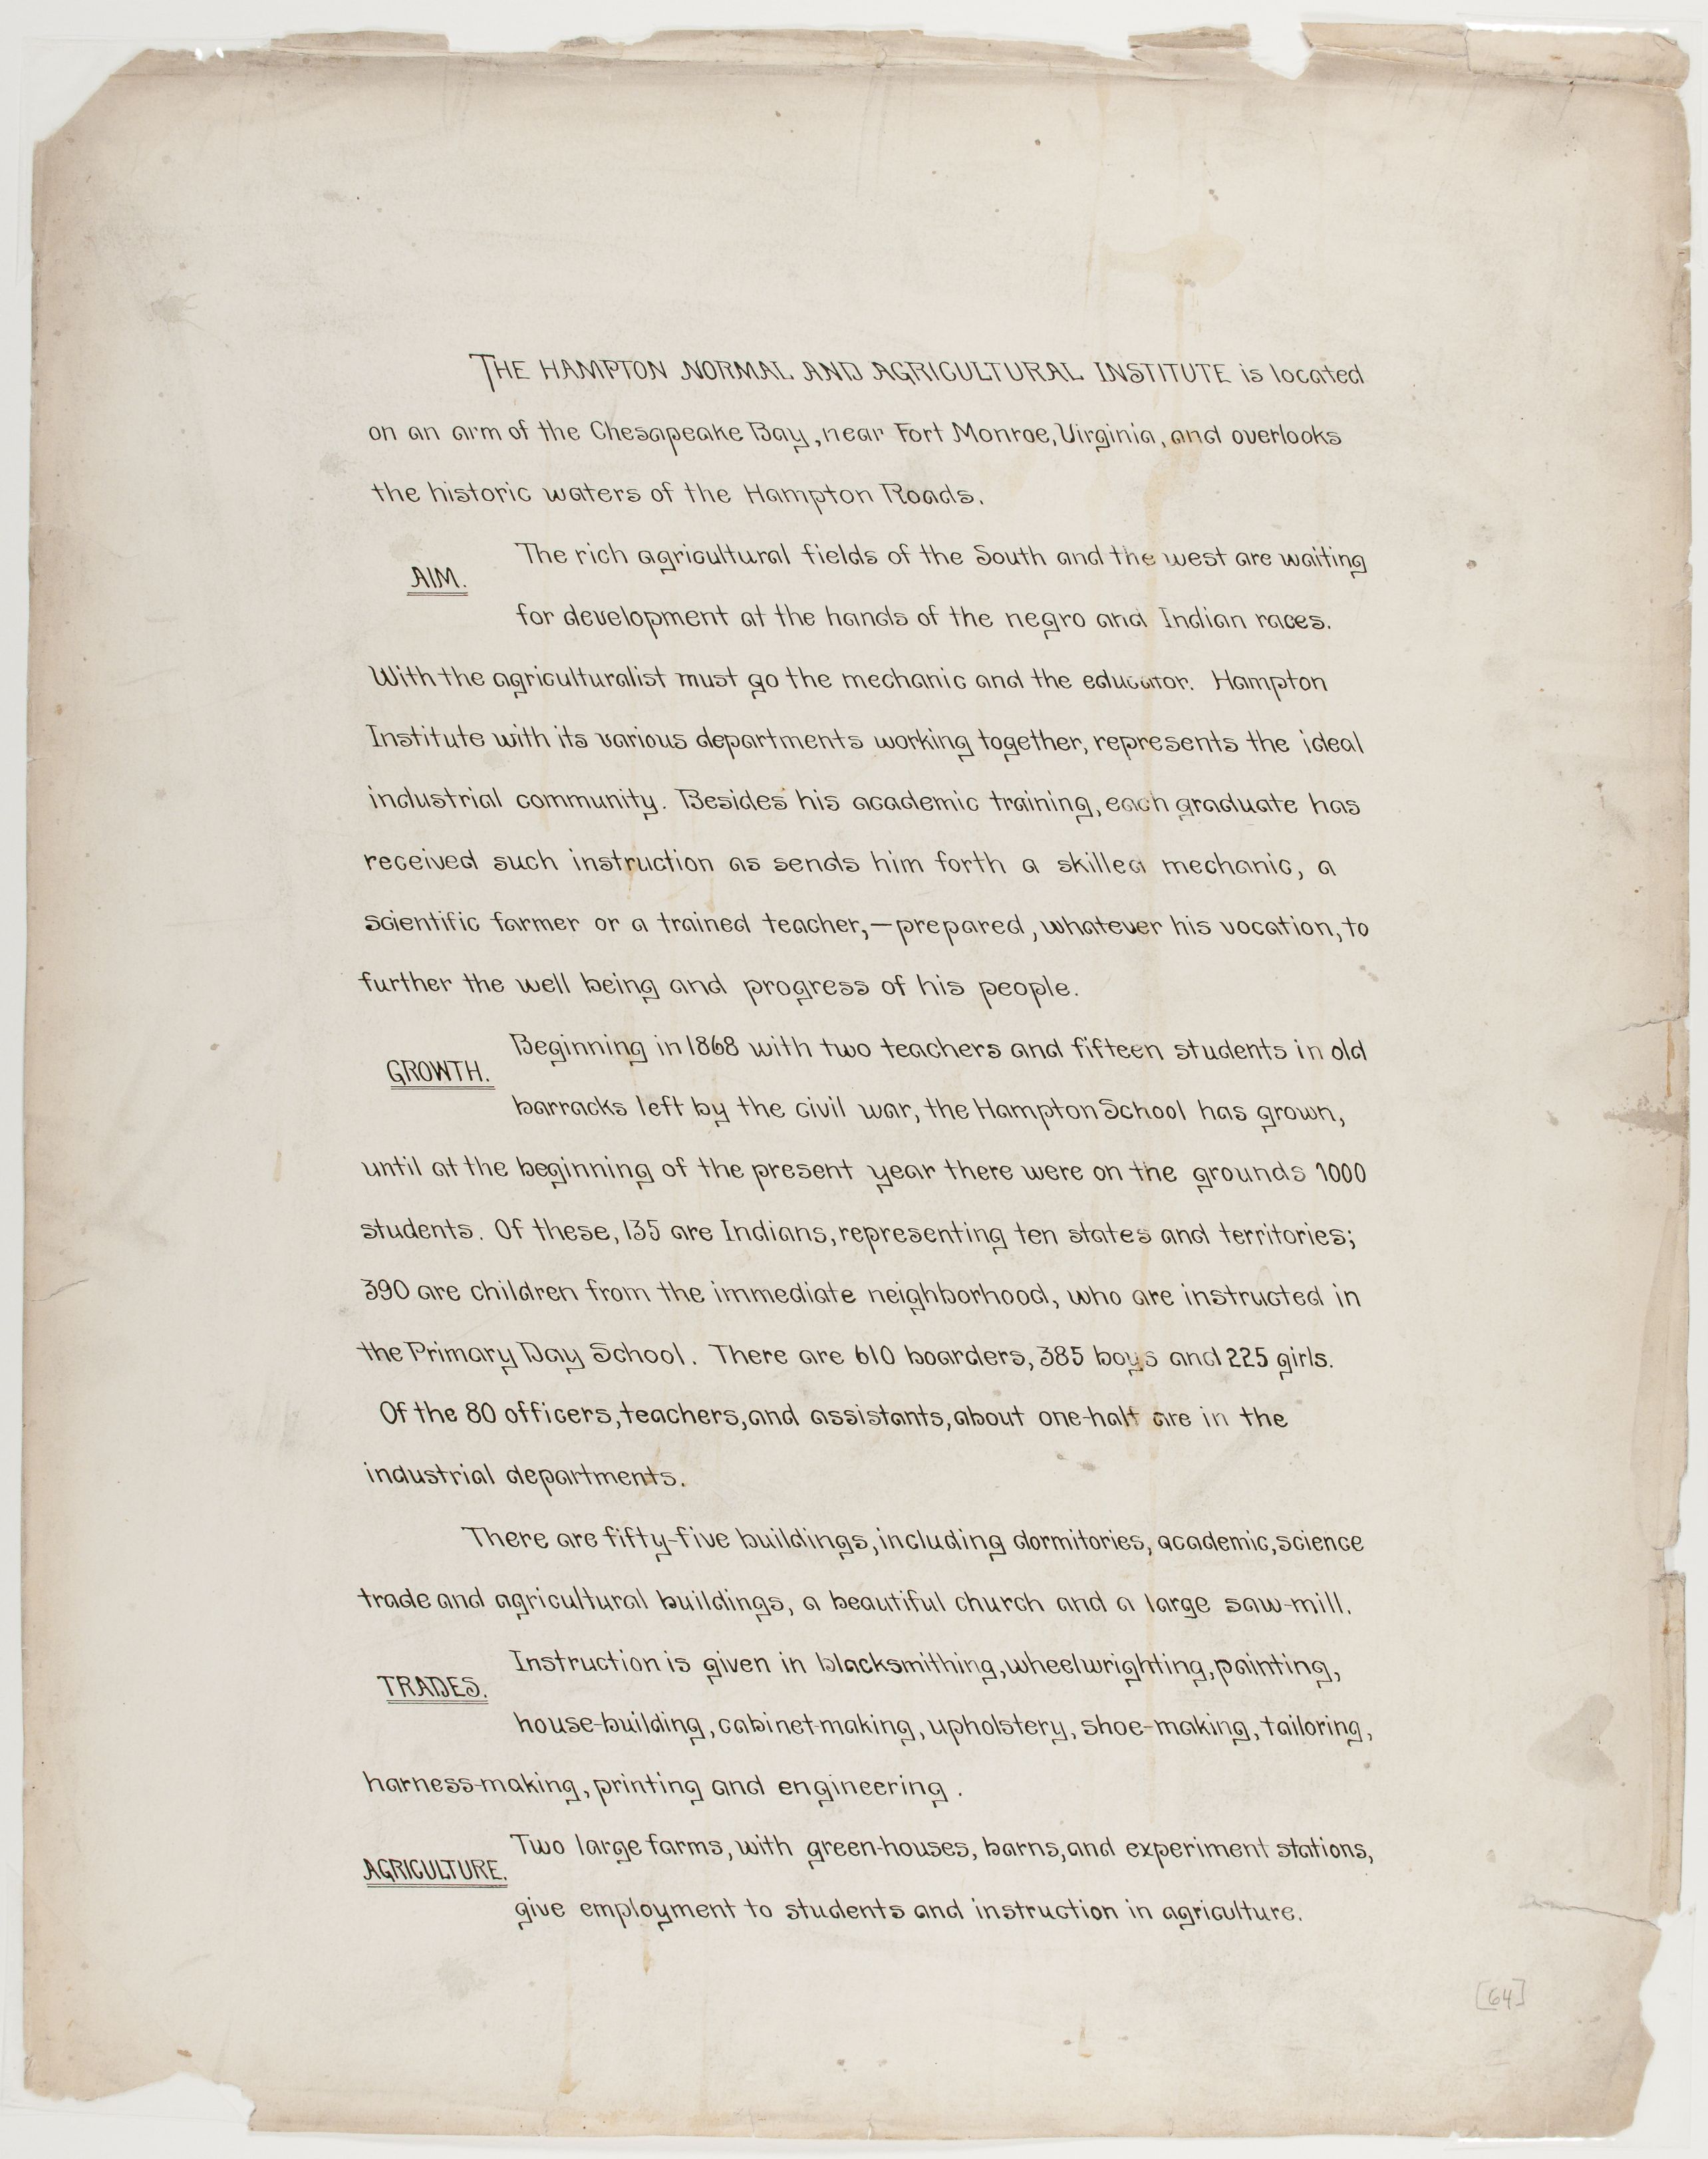 THE HAMPTON NORMAL AND AGRICULTURAL INSTITUTE is located
on an arm of the Chesapeake Bay, near Fort Monroe, Virginia, and overlooks
the historic waters of the Hampton Roads.
AIM.
The rich agricultural fields of the South and the west are waiting
for development at the hands of the negro and Indian races.
With the agriculturalist must go the mechanic and the educator. Hampton
Institute with its various departments working together, represents the ideal
industrial community. Besides his academic training, each graduate has
received such instruction as sends him forth a skilled mechanic, a
scientific farmer or a trained teacher,—prepared, whatever his vocation, to
further the well being and progress of his people.
GROWTH.
Beginning in 1868 with two teachers and fifteen students in old
barracks left by the civil war, the Hampton School has grown,
until at the beginning of the present year there were on the grounds 1000
students. Of these, 135 are Indians, representing ten states and territories;
390 are children from the immediate neighborhood, who are instructed in
the Primary Day School. There are 610 boarders, 385 boys and 225 girls.
Of the 80 officers, teachers, and assistants, about one-half are in the
industrial departments.
There are fifty-five buildings, including dormitories, academic, science
trade and agricultural buildings, a beautiful church and a large saw-mill.
TRADES.
Instruction is given in blacksmithing, wheelwrighting, painting,
house-building, cabinet-making, upholstery, shoe-making, tailoring,
harness-making, printing and engineering.
AGRICULTURE.
Two large farms, with green-houses, barns, and experiment stations,
give employment to students and instruction in agriculture.
[64]